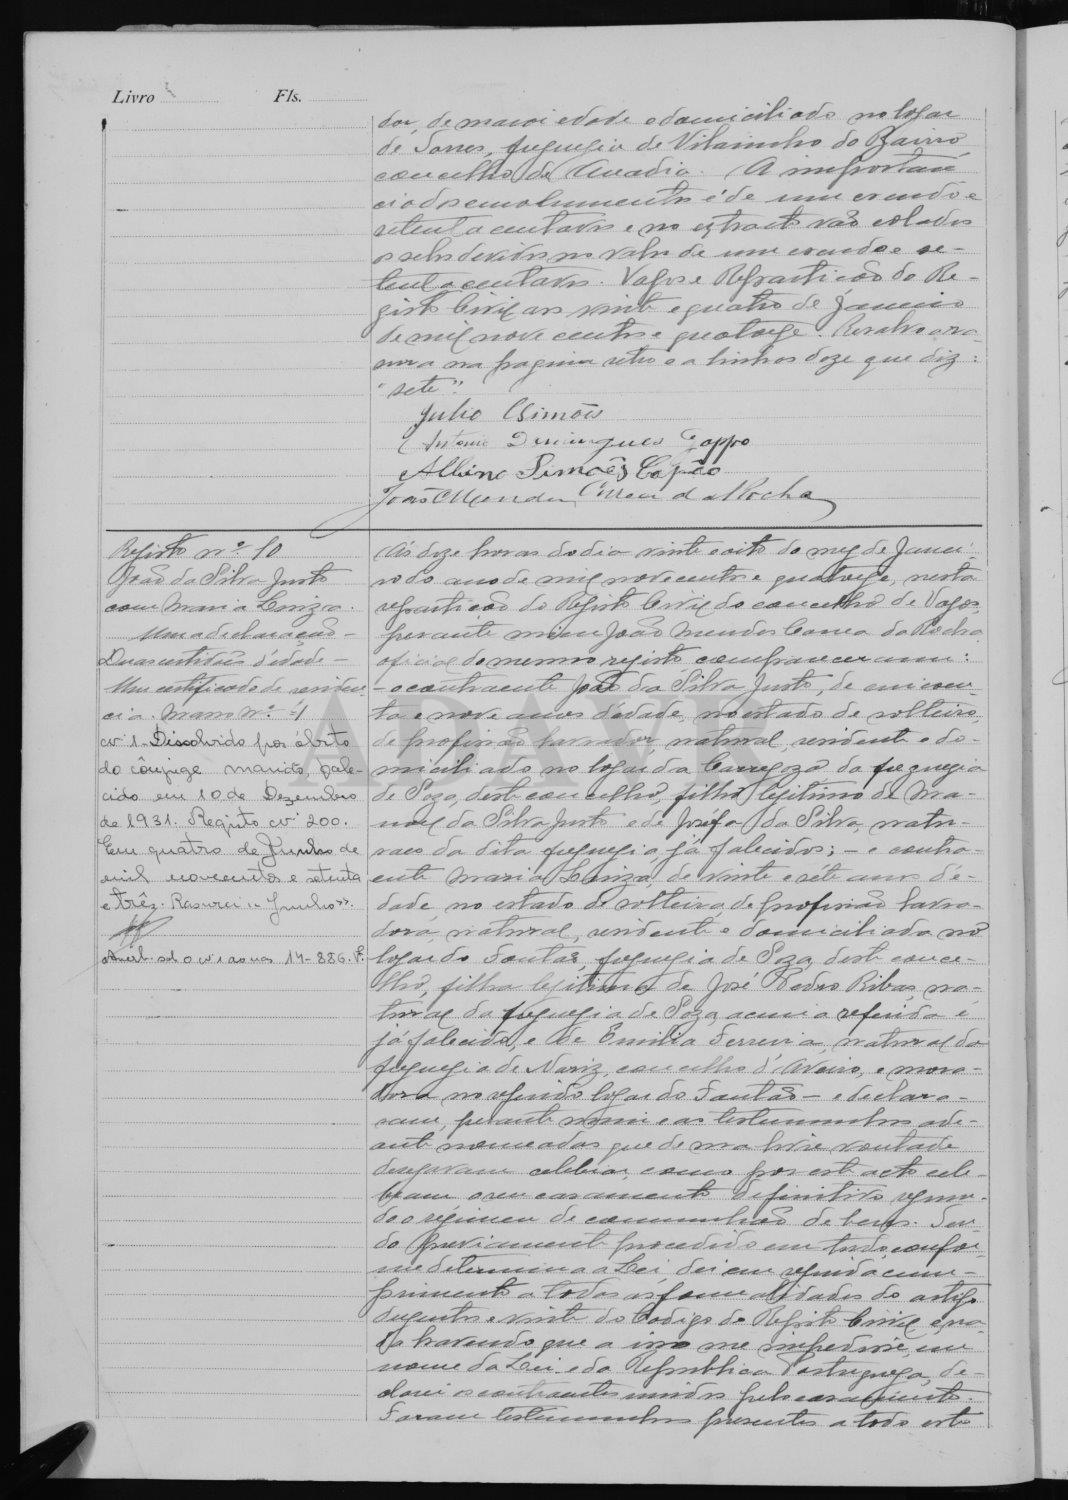 Livro Fls.
dor, de maior edade e domiciliado no logar
de Sorres, freguesia de Vilarinho do Bairro,
concelho de Anadia. A importan
cia dos emolumentos é de um escudo e
setenta centavos e no extracto vão colados
os selos devidos no valor de um escudo e se-
tenta centavos. Vagos e Repartição do Re-
gisto Civil aos vinte e quatro de Janeiro
de mil nove centos e quatorze. Resalvo a ra-
sura na pagina retro e a linhas doze que diz:
"sete".
Julio Simões
Antonio Domingues Gappo
Albino Simões Capão
João Mendes Correia da Rocha
Registo nº 10
João da Silva Justo
com Maria Luiza.
Uma declaração -
Duas certidões d'edade -
Um certificado de residen-
cia. Masso nº 1
Nº 1. Dissolvido por óbito
do cônjuge marido, fale-
cido em 10 de Dezembro
de 1931. Registo nº 200.
Em quatro de Junho de
mil novecentos e setenta
e trez. Rasurei "Junho".
14-886.
Ás doze horas do dia vinte e oito do mez de Janei-
ro do ano de mil nove centos e quatorze, nesta
repartição do Registo Civil do concelho de Vagos,
perante mim João Mendes Correa da Rocha
oficial do mesmo registo, compareceram:
- o contraente João da Silva Justo, de cincoen-
ta e nove anos d'edade, no estado de solteiro,
de profissão lavrador, natural, residente e do-
miciliado no logar da Carregosa da freguesia
de Soza, deste concelho, filho legitimo de Ma-
nuel da Silva Justo e de Josefa da Silva, natu-
raes da dita freguesia, já falecidos; - e a contra-
ente Maria Luiza, de vinte e sete anos d'e-
dade, no estado de solteira, de profissão lavra-
dora, natural, residente e domiciliada no
logar do Fontão, freguesia de Soza, deste conce-
lho, filha legitima de José Pedro Ribas, na-
tural da freguesia de Soza, acima referida e
já falecido, e de Emilia Ferreira, natural da
freguesia de Nariz, concelho d'Aveiro, e mora-
dora no referido logar do Fontão - e declara-
ram, perante mim e as testemunhas adi-
ante nomeadas, que de sua livre vontade
desejavam celebrar, como por este acto cele-
bram o seu casamento definitivo, segun-
do o régimen de communhão de bens. Ten-
do previamente procedido em tudo, confor-
me determina a Lei, dei em seguida cum-
primento a todas as formalidades do artigo
duzentos e vinte do Codigo do Registo Civil e, na-
da havendo que a isso me impedisse, em
nome da Lei e da Republica Portugueza, de-
clarei os contraentes unidos pelo casamento.
Foram testemunhas presentes a todo este
ADAVR